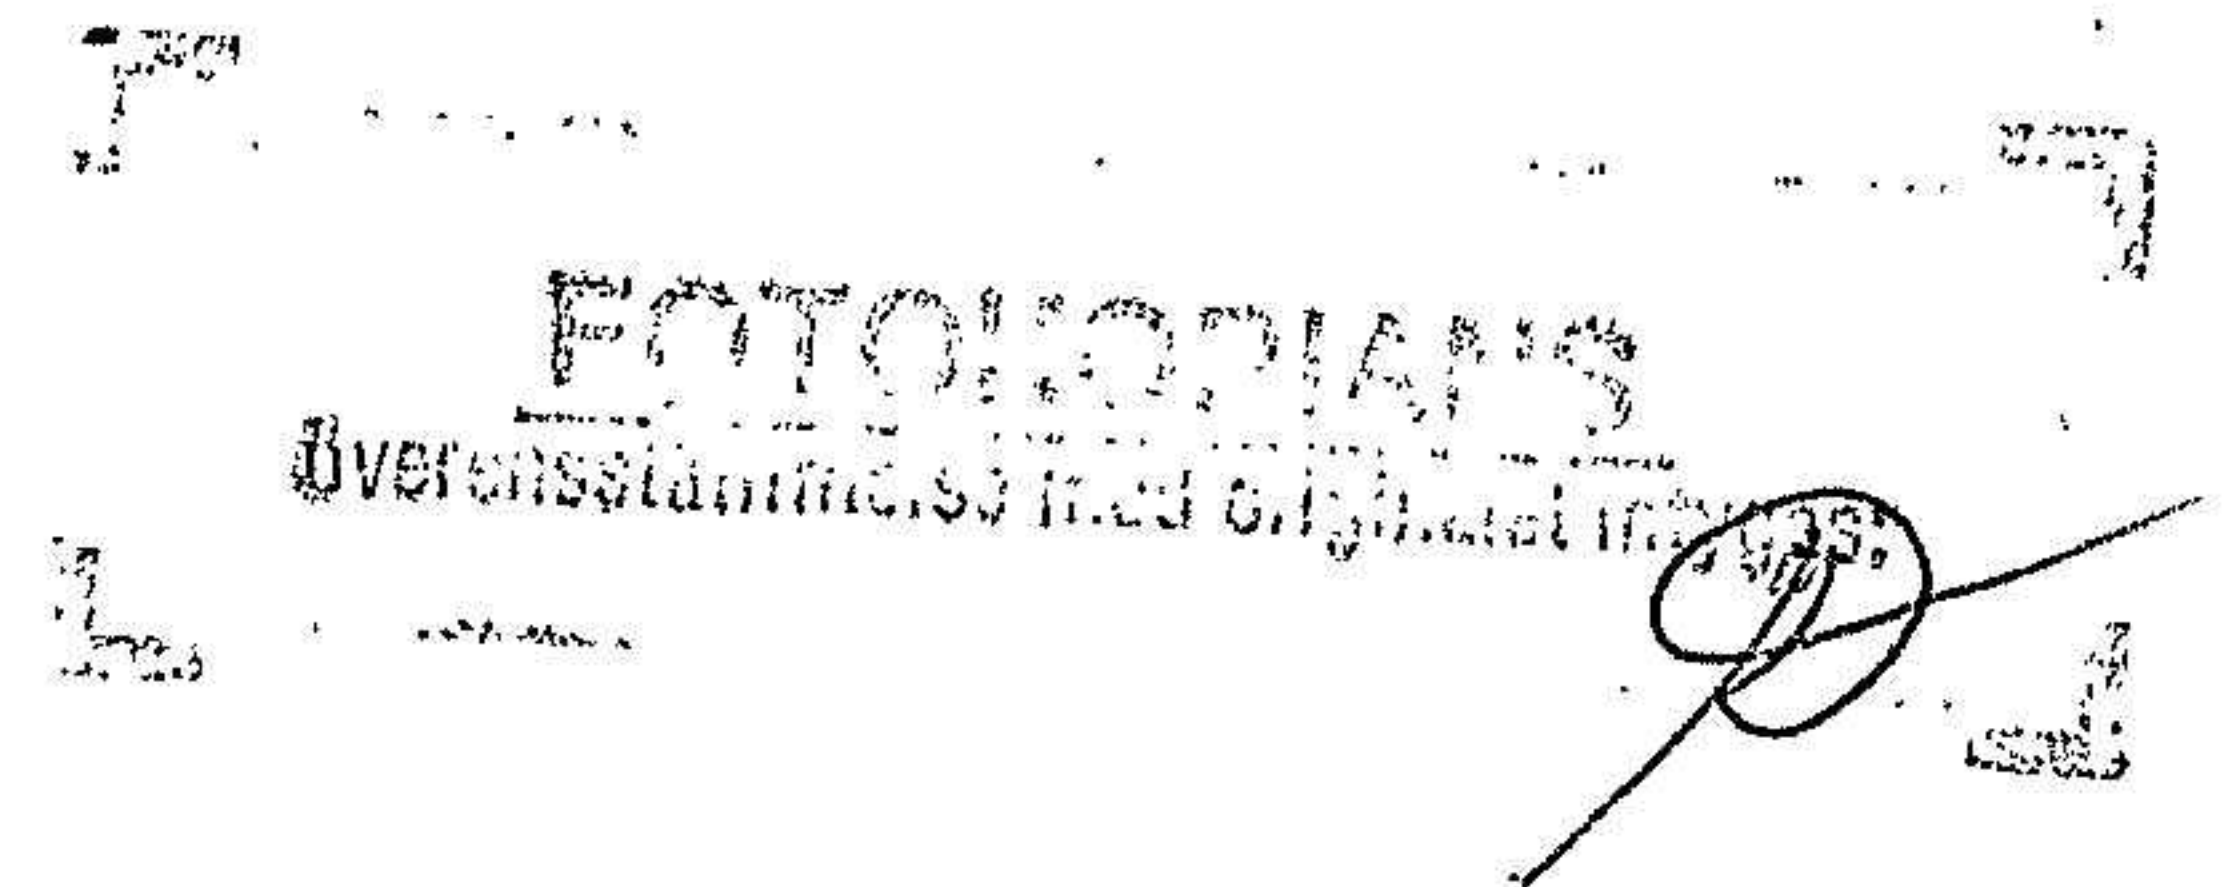 FOTOKOPIANS
överensstämmelse med originalet intygas: